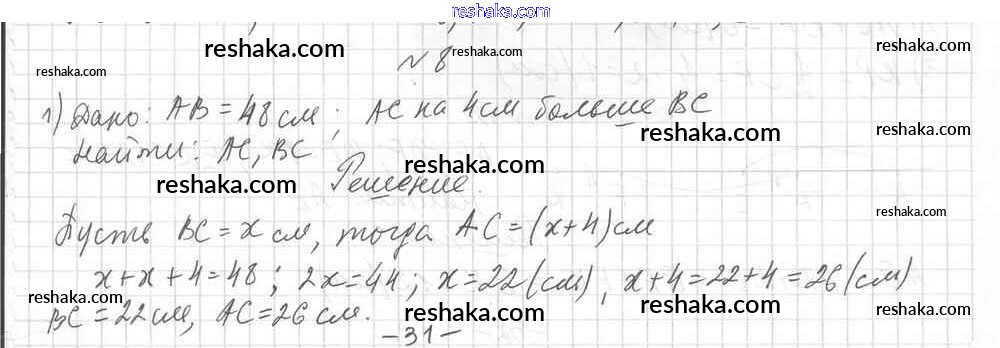 reshaka.com
reshaka.com reshaka.com reshaka.com
reshaka.com
№ 8
1) Дано: AB = 48 см; AC на 4 см больше BC
reshaka.com reshaka.com
Найти: AC, BC
reshaka.com
reshaka.com
Решение.
reshaka.com
Пусть BC = x см, тогда AC = (x+4) см
x + x + 4 = 48; 2x = 44; x = 22 (см), x + 4 = 22 + 4 = 26 (см)
reshaka.com reshaka.com reshaka.com reshaka.com
BC = 22 см, AC = 26 см.
– 31 –